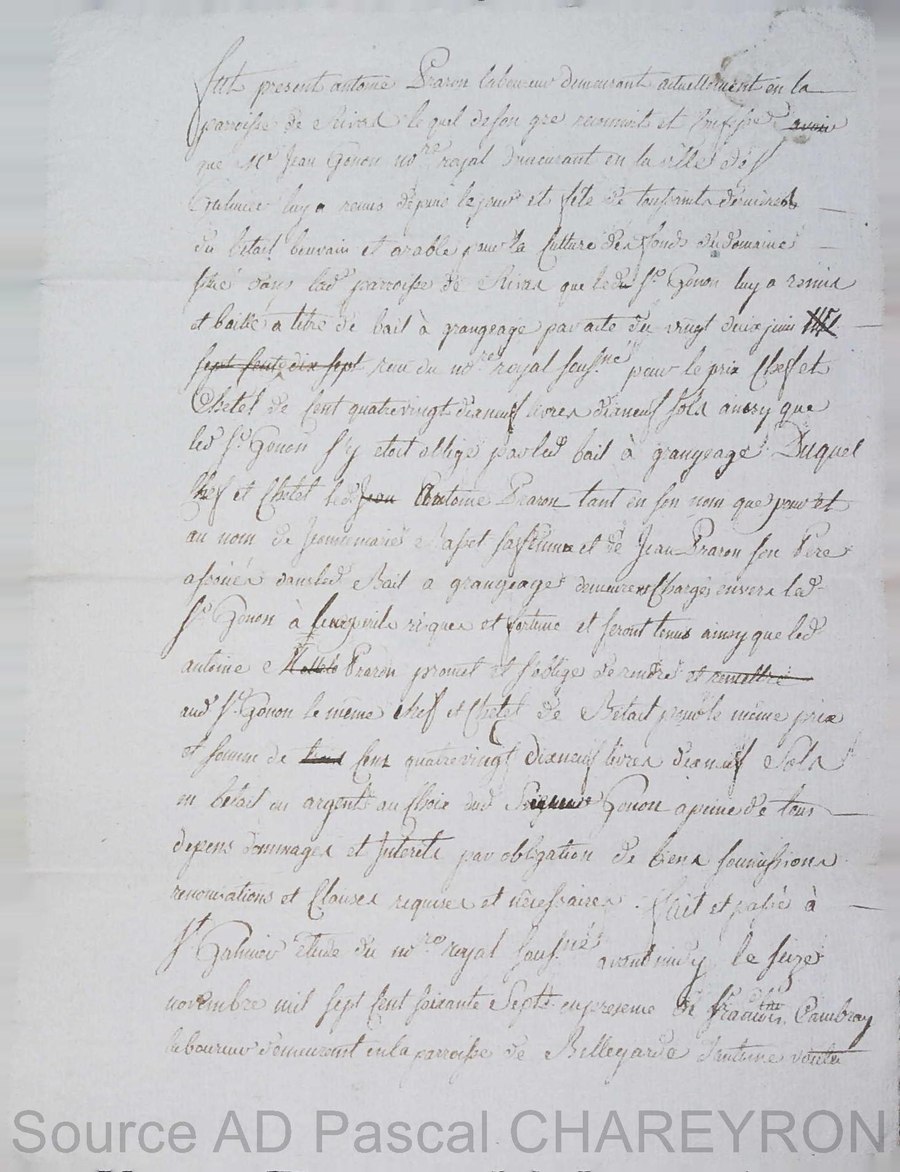 fut present antoine Praron laboureur demeurant actuellement en la
parroisse de Rivas lequel de son gré reconnoit et confesse avoir
que Me Jean Gonon nore royal demeurant en la ville de st
Galmier luy a remis depuis le jour et fête de toussaints dernier
du bétail bouvain et arable pour la Culture des fonds du domaine
situé dans lad parroisse de Rivas que led Sr Gonon luy a remis
et baillé a titre de bail à grangeage par acte du vingt deux juin mil
sept cents dix sept reçu du nore royal soussné pour le prix Chef et
Chetel de Cent quatre vingt dixneuf livres dixneuf sols ainsy que
led Sr Gonon s'y etoit obligé par led bail à grangeage Duquel
Chef et Chetel led Jean Antoine Praron tant en son nom que pour et
au nom de Jeanne marie sa femme et de Jean Praron son Pere
associés dans led Bail a grangeage demeurent Chargés envers led
Sr Gonon à leurs perils risques et fortune et seront tenus ainsy que led
antoine Praron promet et s'oblige de rendre et remettre
aud Sr Gonon le même chef et Chetel de Bétail pour le même prix
et somme de Cent quatre vingt dixneuf livres dixneuf Sols
en bétail ou argent au Choix dud Gonon a peine de tous
depens dommages et Interets par obligation de biens soumissions
renonciations et Clauses requises et nécessaires. fait et passé à
St Galmier Etude du nore royal soussné avant midy le seize
novembre mil sept Cent soixante Sept en presence de françois Cambray
laboureur demeurant en la parroisse de Bellegarde Antoine